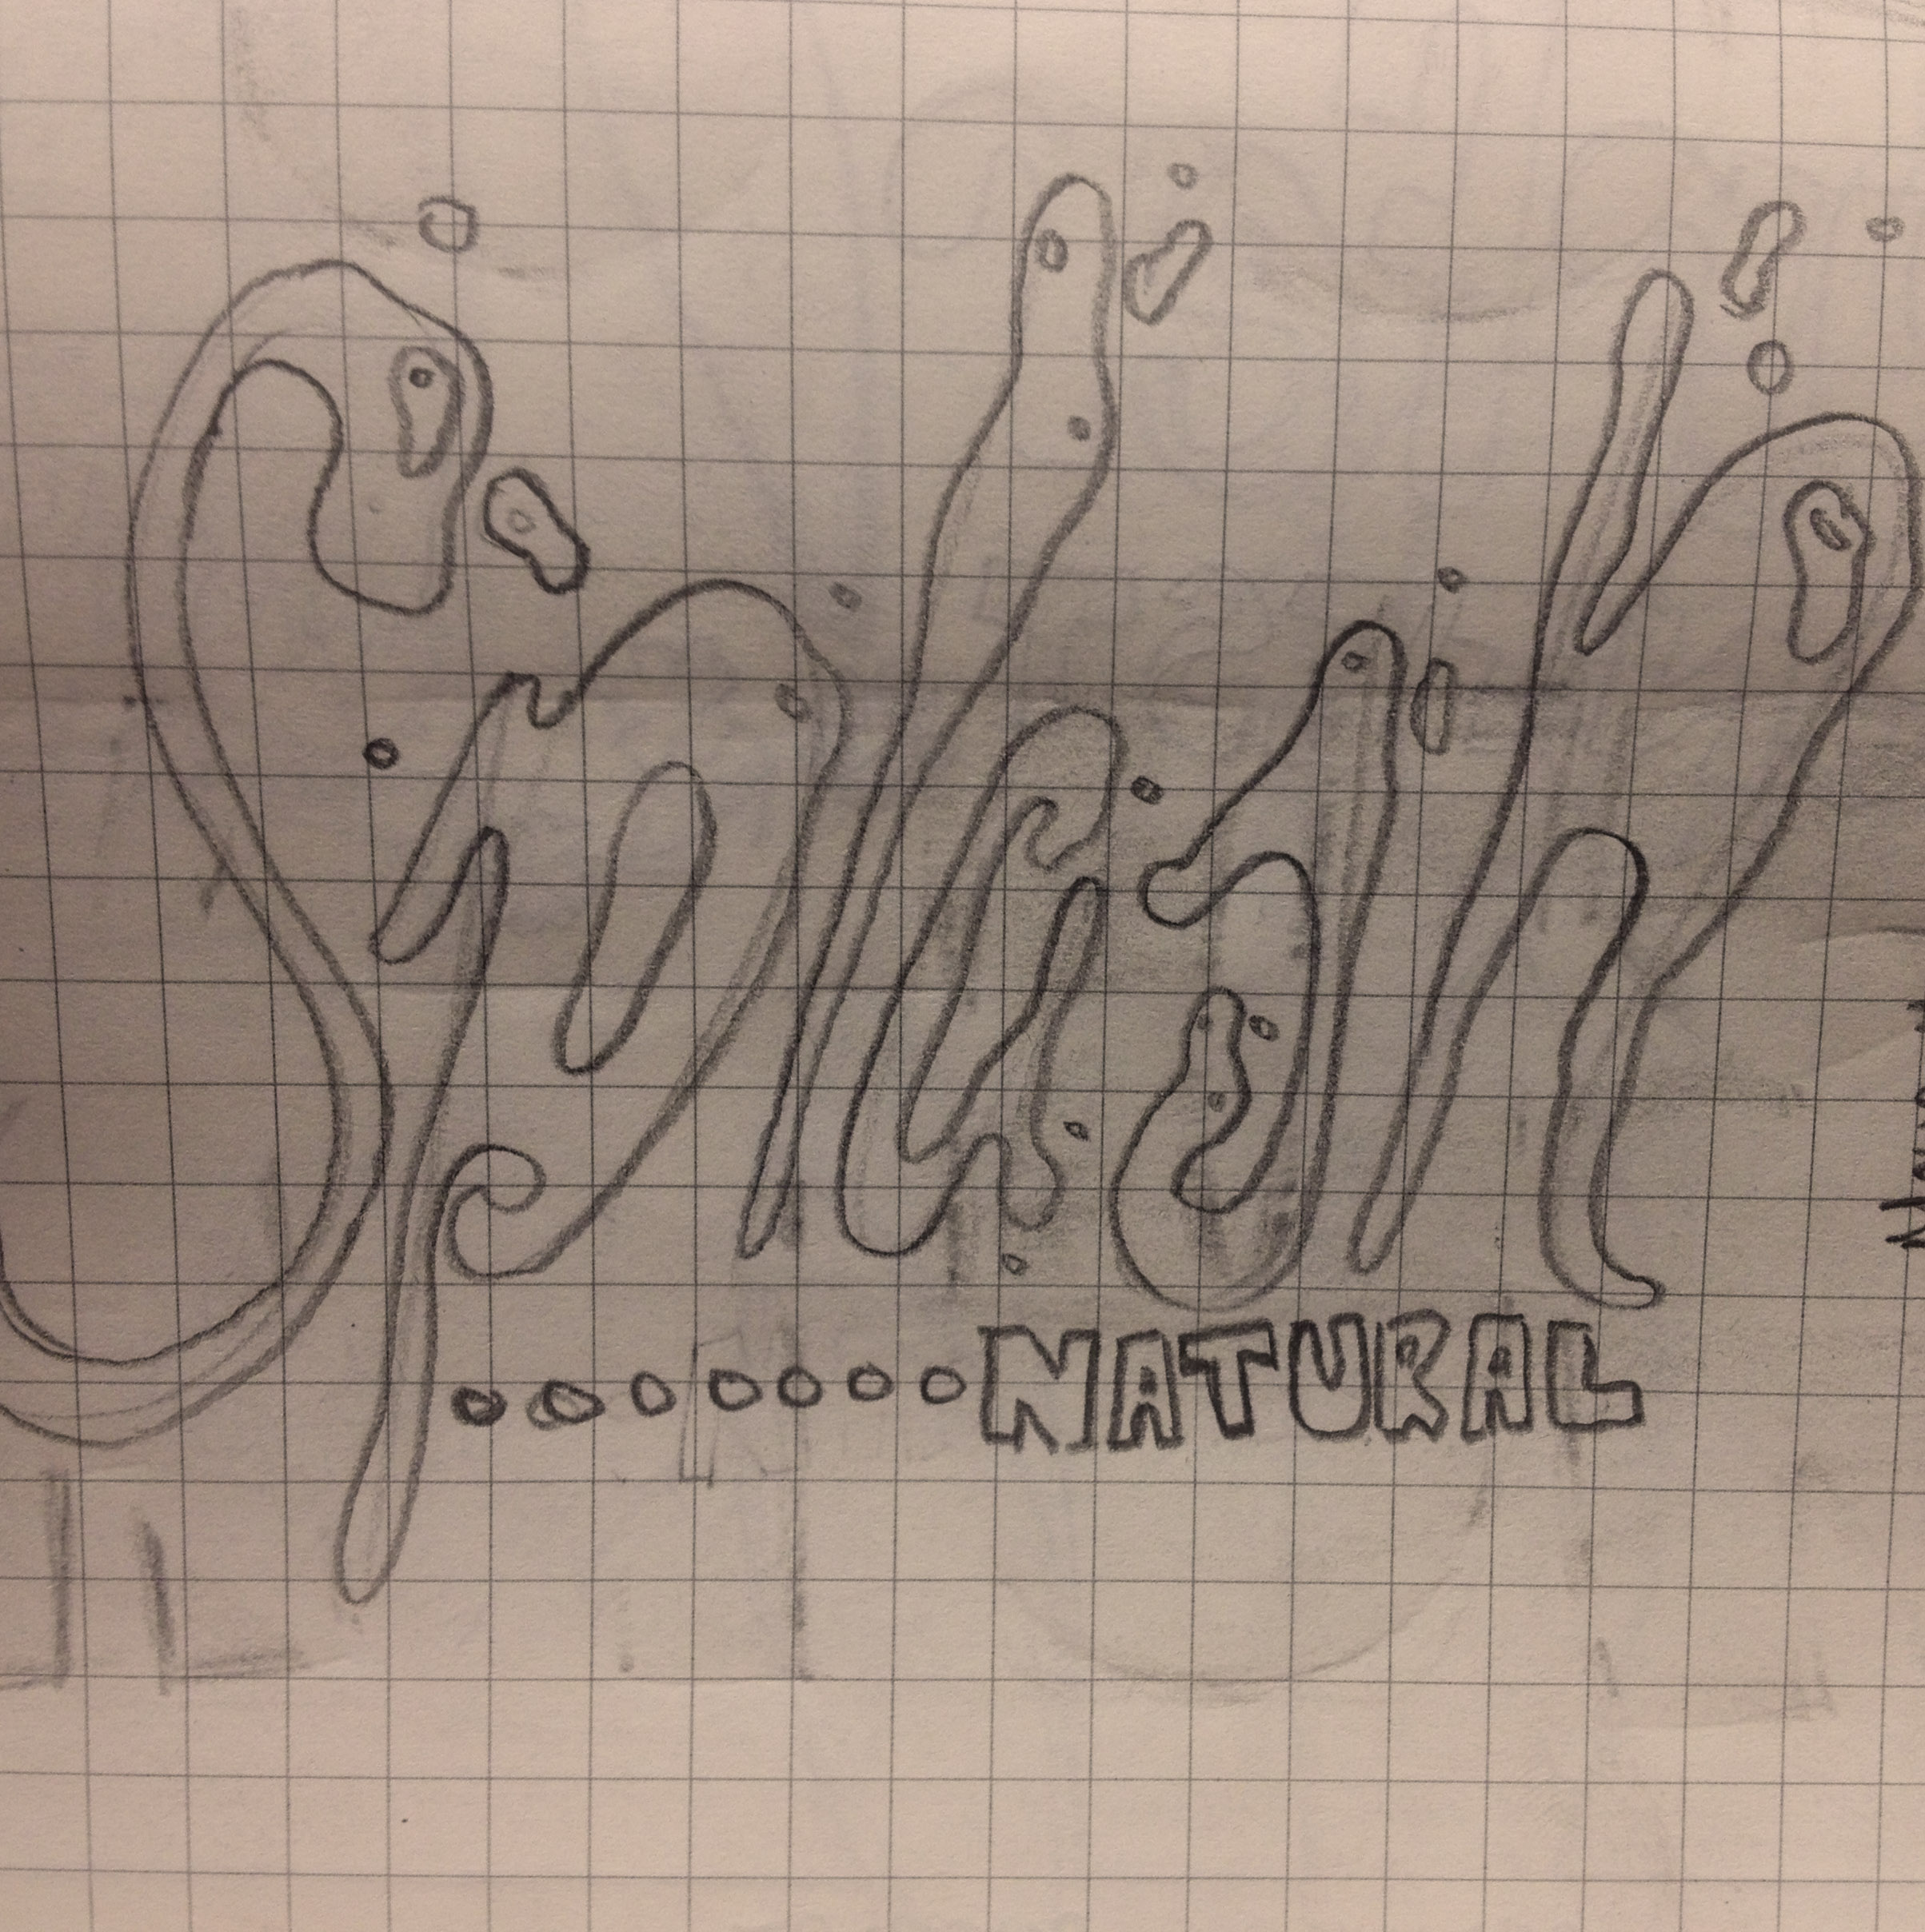 Splash
NATURAL